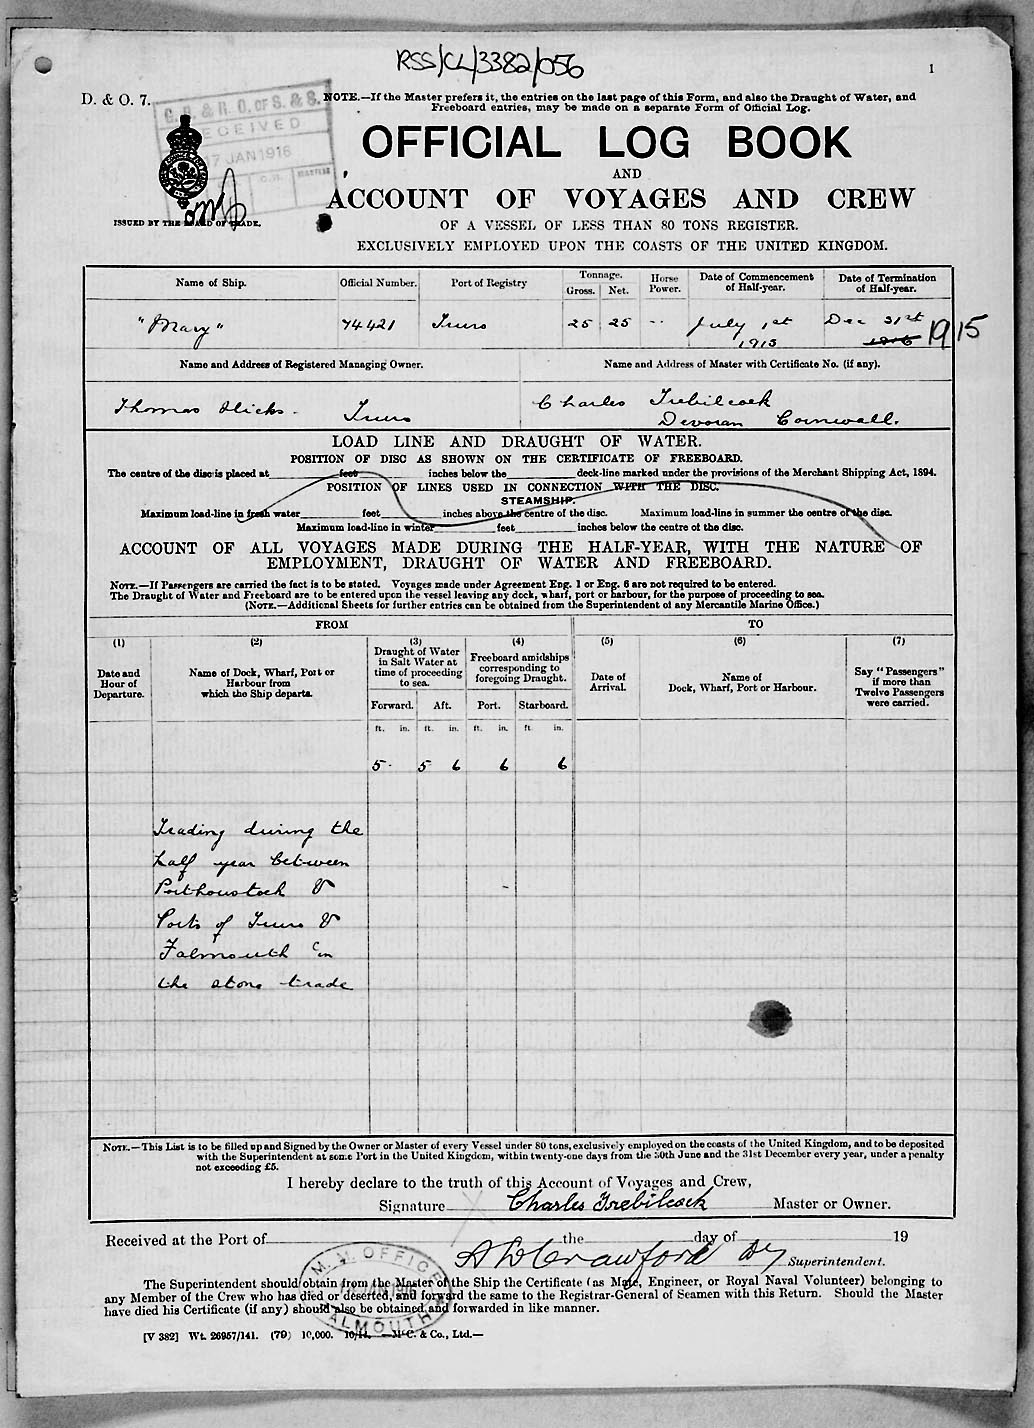 RSS/CL/3382/056
1
D. & O. 7.
G. R. & R. O. OF S. & S.
RECEIVED
17 JAN 1916
ISSUED BY THE BOARD OF TRADE.
NOTE.—If the Master prefers it, the entries on the last page of this Form, and also the Draught of Water, and
Freeboard entries, may be made on a separate Form of Official Log.
OFFICIAL LOG BOOK
AND
ACCOUNT OF VOYAGES AND CREW
OF A VESSEL OF LESS THAN 80 TONS REGISTER.
EXCLUSIVELY EMPLOYED UPON THE COASTS OF THE UNITED KINGDOM.
Name of Ship. Official Number. Port of Registry Tonnage. Gross. Net. Horse Power. Date of Commencement of Half-year. Date of Termination of Half-year.
"Mary" 74421 Truro 25 25 -- July 1st 1915 Dec 31st 1915
Name and Address of Registered Managing Owner. Name and Address of Master with Certificate No. (if any).
Thomas Hicks. Truro Charles Trebilcock
Devoran Cornwall.
LOAD LINE AND DRAUGHT OF WATER.
POSITION OF DISC AS SHOWN ON THE CERTIFICATE OF FREEBOARD.
The centre of the disc is placed at feet inches below the deck-line marked under the provisions of the Merchant Shipping Act, 1894.
POSITION OF LINES USED IN CONNECTION WITH THE DISC.
STEAMSHIP.
Maximum load-line in fresh water feet inches above the centre of the disc. Maximum load-line in summer the centre of the disc.
Maximum load-line in winter feet inches below the centre of the disc.
ACCOUNT OF ALL VOYAGES MADE DURING THE HALF-YEAR, WITH THE NATURE OF
EMPLOYMENT, DRAUGHT OF WATER AND FREEBOARD.
NOTE.—If Passengers are carried the fact is to be stated. Voyages made under Agreement Eng. 1 or Eng. 6 are not required to be entered.
The Draught of Water and Freeboard are to be entered upon the vessel leaving any dock, wharf, port or harbour, for the purpose of proceeding to sea.
(NOTE.—Additional Sheets for further entries can be obtained from the Superintendent of any Mercantile Marine Office.)
FROM TO
(1) (2) (3) (4) (5) (6) (7)
Date and Hour of Departure.
Name of Dock, Wharf, Port or Harbour from which the Ship departs.
Draught of Water in Salt Water at time of proceeding to sea.
Freeboard amidships corresponding to foregoing Draught.
Date of Arrival.
Name of Dock, Wharf, Port or Harbour.
Say "Passengers" if more than Twelve Passengers were carried.
Forward. Aft. Port. Starboard.
ft. in. ft. in. ft. in. ft. in.
5 - 5 6 6 6
Trading during the
half year between
Porthoustock &
Ports of Truro &
Falmouth in
the stone trade
NOTE.—This List is to be filled up and Signed by the Owner or Master of every Vessel under 80 tons, exclusively employed on the coasts of the United Kingdom, and to be deposited
with the Superintendent at some Port in the United Kingdom, within twenty-one days from the 30th June and the 31st December every year, under a penalty
not exceeding £5.
I hereby declare to the truth of this Account of Voyages and Crew,
Signature Charles Trebilcock Master or Owner.
Received at the Port of the day of 19
Crawford Superintendent.
M. M. OFFICE
JAN 1916
FALMOUTH
The Superintendent should obtain from the Master of the Ship the Certificate (as Mate, Engineer, or Royal Naval Volunteer) belonging to
any Member of the Crew who has died or deserted, and forward the same to the Registrar-General of Seamen with this Return. Should the Master
have died his Certificate (if any) should also be obtained and forwarded in like manner.
[V 382] Wt. 26957/141. (79) 10,000. 10/14. —McC. & Co., Ltd.—